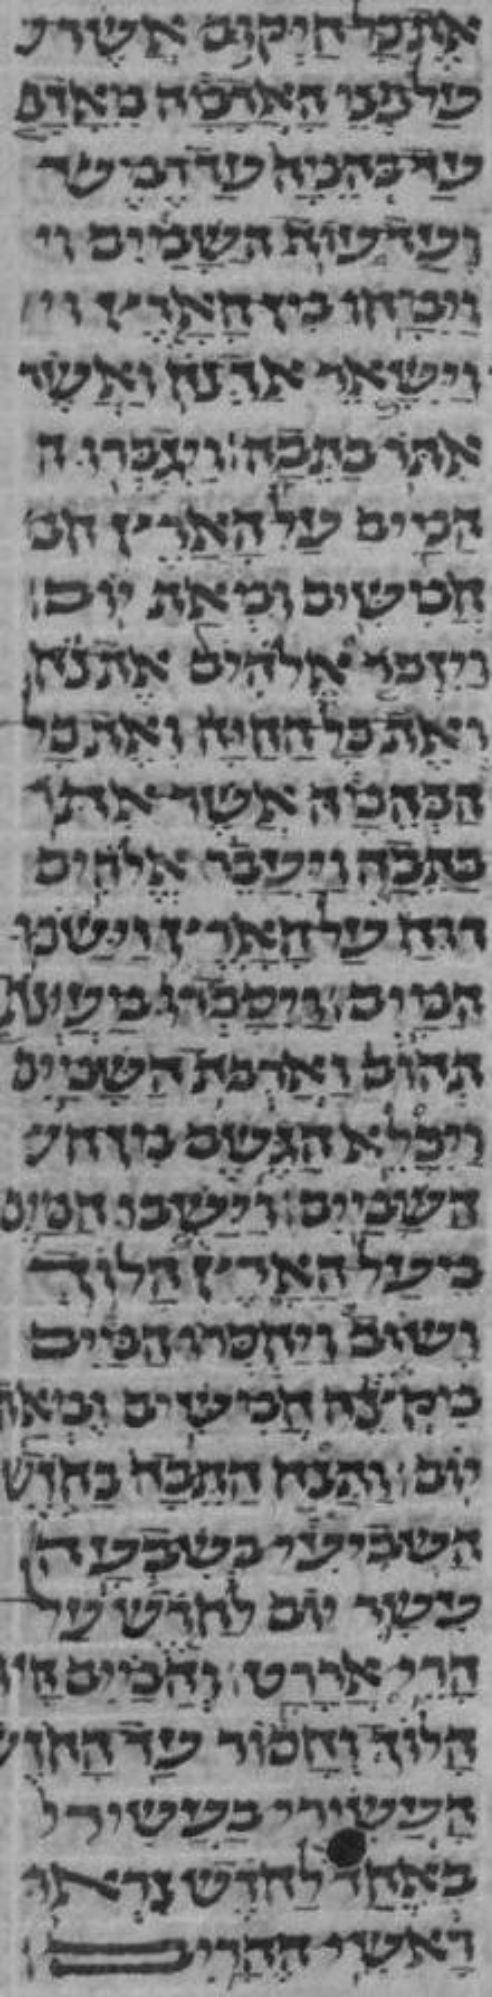 אֶת כָּל הַיְקוּם אֲשֶׁר ע
עַל פְּנֵי הָאֲדָמָה מֵאָדָם
עַד בְּהֵמָה עַד רֶמֶשׂ עד
וְעַד עוֹף הַשָּׁמַיִם וי
וַיִּמָּחוּ מִן הָאָרֶץ וי
וַיִּשָּׁאֶר אַךְ נֹחַ וַאֲשֶׁר
אִתּוֹ בַּתֵּבָה׃ וַיִּגְבְּרוּ ה
הַמַּיִם עַל הָאָרֶץ חמ
חֲמִשִּׁים וּמְאַת יוֹם׃
וַיִּזְכֹּר אֱלֹהִים אֶת נֹחַ
וְאֵת כָּל הַחַיָּה וְאֶת כָּל
הַבְּהֵמָה אֲשֶׁר אִתּוֹ
בַּתֵּבָה וַיַּעֲבֵר אֱלֹהִים
רוּחַ עַל הָאָרֶץ וַיָּשֹׁכּוּ
הַמָּיִם׃ וַיִּסָּכְרוּ מַעְיְנֹת
תְּהוֹם וַאֲרֻבֹּת הַשָּׁמָיִם
וַיִּכָּלֵא הַגֶּשֶׁם מִן הש
הַשָּׁמָיִם׃ וַיָּשֻׁבוּ הַמַּיִם
מֵעַל הָאָרֶץ הָלוֹךְ
וָשׁוֹב וַיַּחְסְרוּ הַמַּיִם
מִקְצֵה חֲמִשִּׁים וּמְאַת
יוֹם׃ וַתָּנַח הַתֵּבָה בַּחֹדֶשׁ
הַשְּׁבִיעִי בְּשִׁבְעָה
עָשָׂר יוֹם לַחֹדֶשׁ עַל
הָרֵי אֲרָרָט׃ וְהַמַּיִם הָיוּ
הָלוֹךְ וְחָסוֹר עַד הַחֹדֶשׁ
הָעֲשִׂירִי בָּעֲשִׂירִי
בְּאֶחָד לַחֹדֶשׁ נִרְאוּ
רָאשֵׁי הֶהָרִים׃